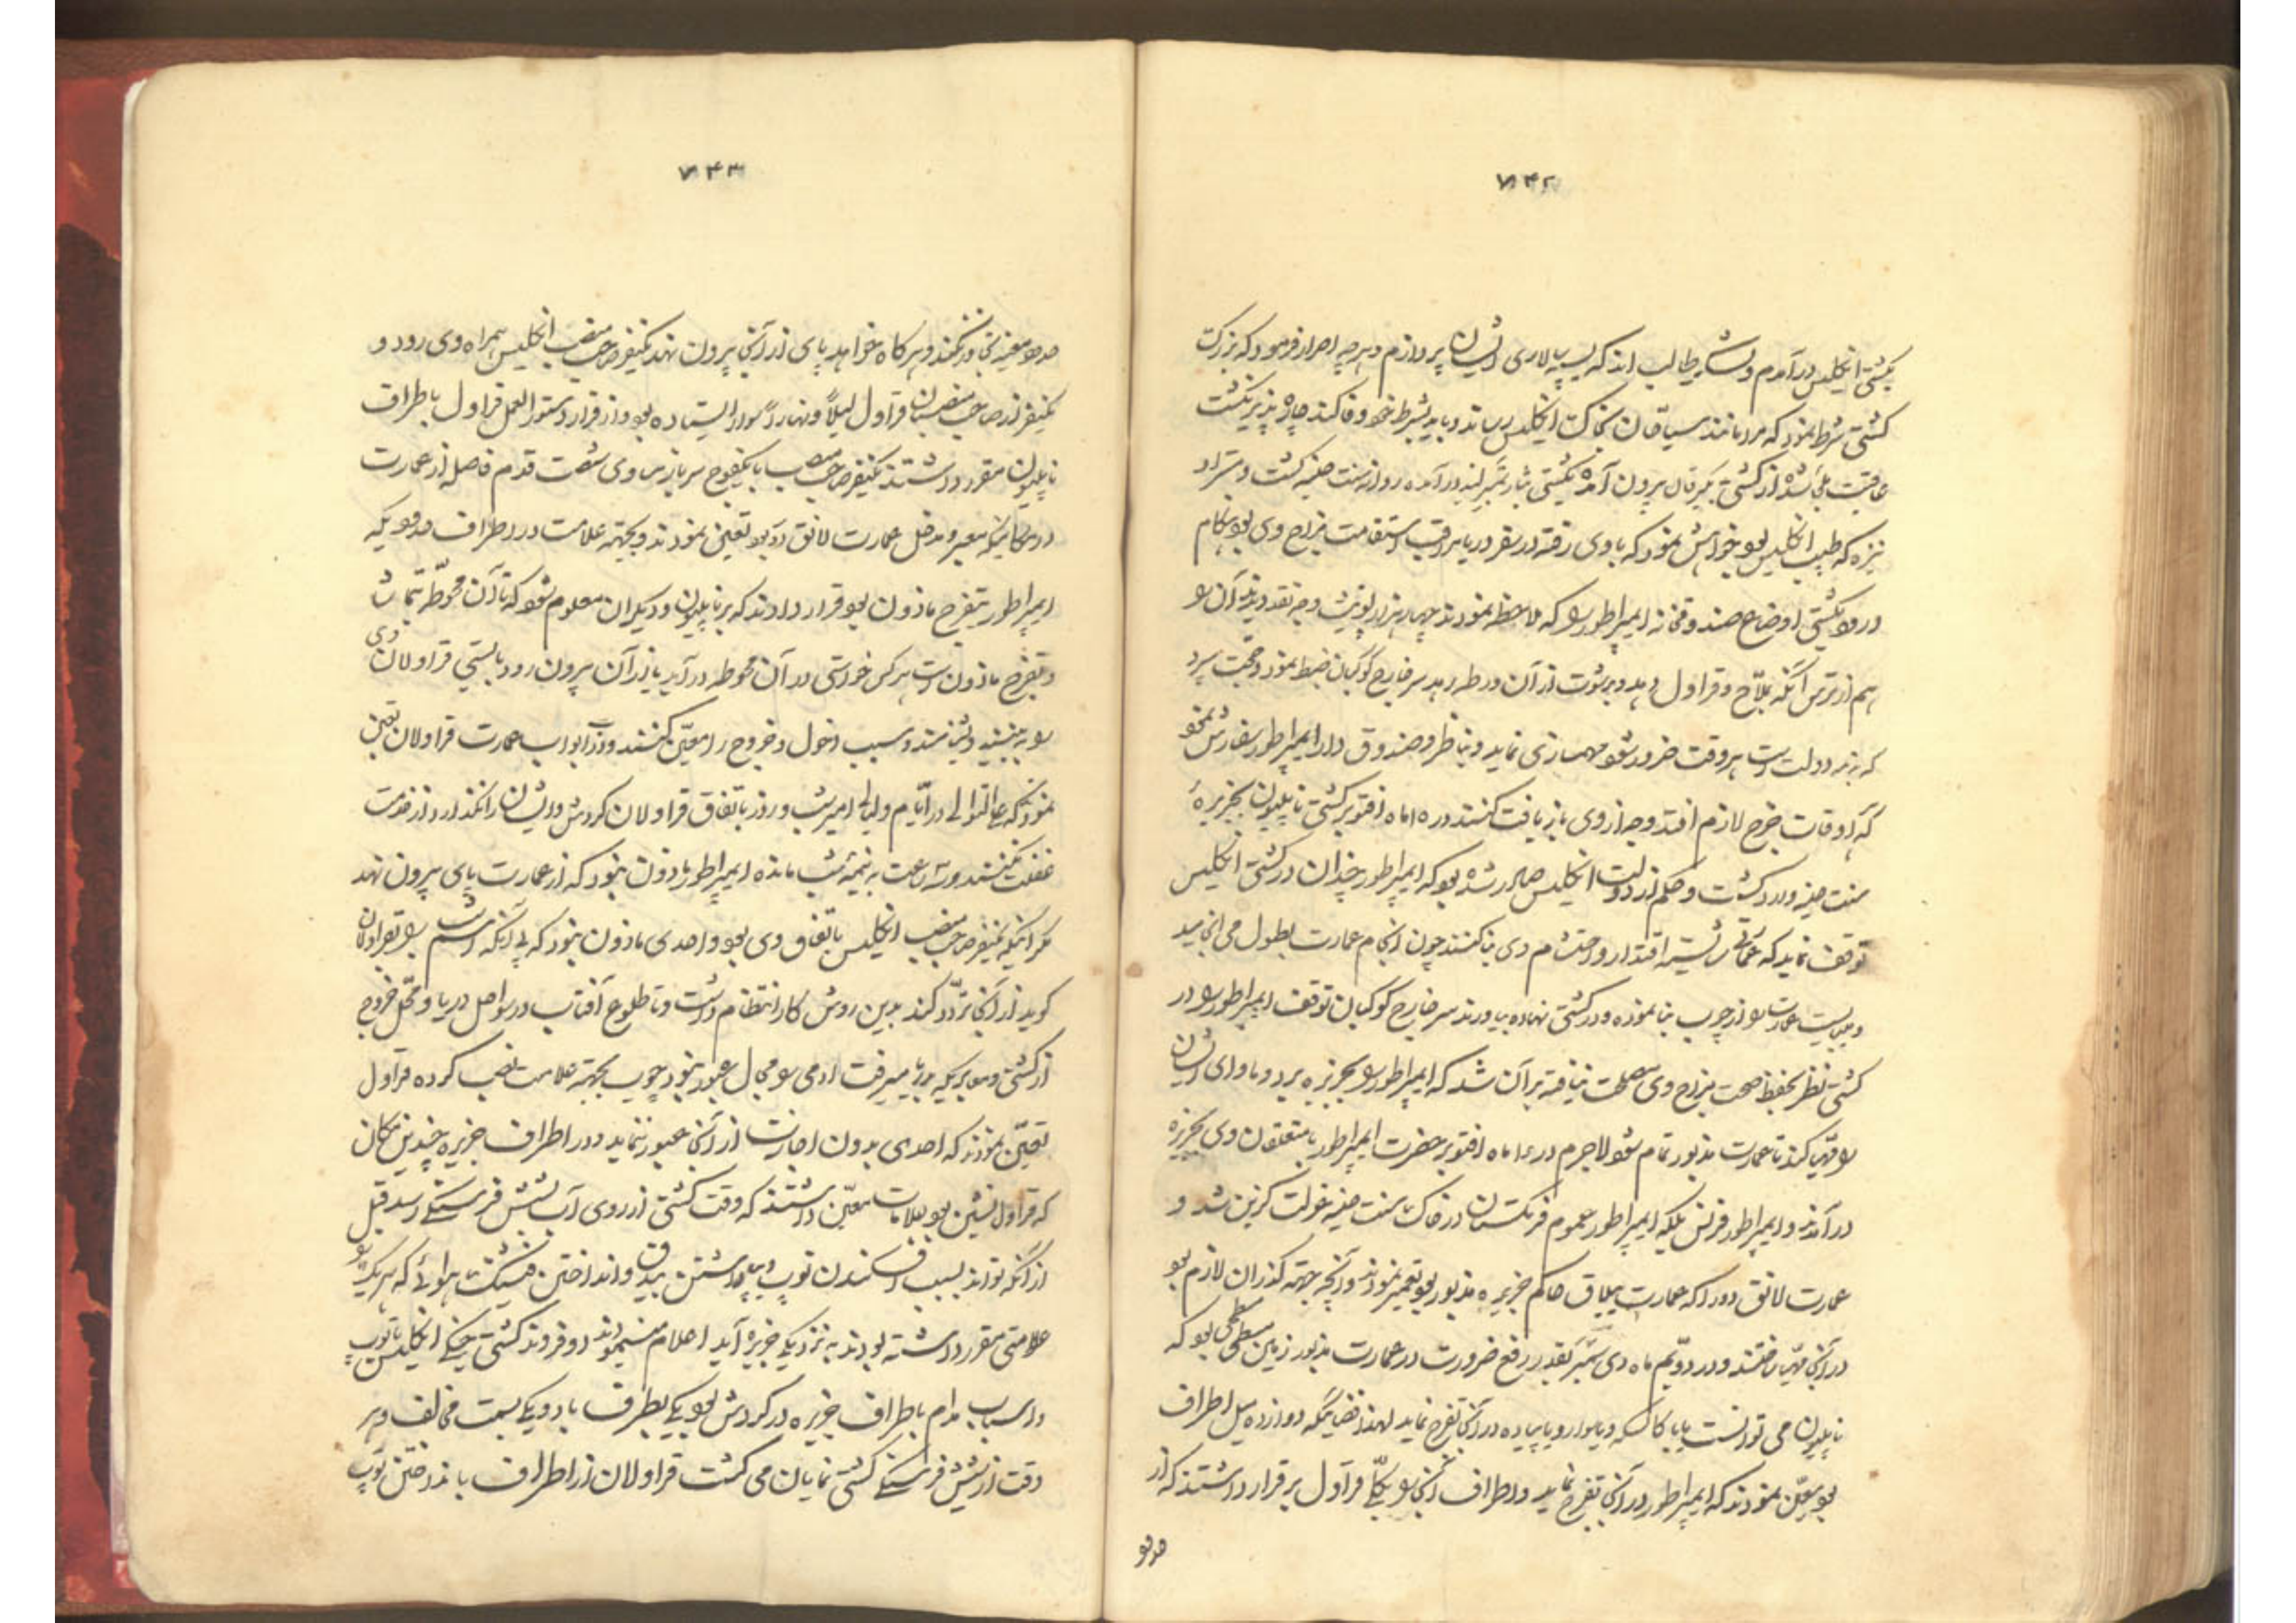 ۷۴۲
بکشتی انکلیس درآمدم و نشاید طالب اند که بسپه سالاری ایشان پردازم و هرچه اصرار فرمود که بزرک
کشتی شرط نمود که مرد مانند سیاقان بخاک انکلیس رساند و باید بشرط خود وفا کند چاره پذیر نکشت
عاقبت از کشتی بیرون آمده بکشتی درآمده روانه سنت هلنه کشت و
نیزه که طبیب انکلیس بود خواهش نمود که با وی رفته در سفر دریا مراقب استقامت مزاج وی بود هنکام
ورود بکشتی اوضاع صندوقخانه ایمپراطور را که ملاحظه نمودند چهار هزار وجه نقد دیدند آن را
هم از ترس آنکه بملاح و قراول دهد و برشوت از آن ورطه رهد سر خارج کوکبان ضبط نمود و حجت سپرد
که نزد دولت است هر وقت ضرور شود مهمسازی نماید و بناظر و صندوق دار ایمپراطور سفارش نمود
که اوقات خرج لازم افتد وجه از وی بازیافت کنند در ۱۵ ماه اقتوبر کشتی ناپلیون بجزیرهٔ
سنت هلنه وارد کشت و حکم از دولت انکلیس صادر شده بود که ایمپراطور چندان در کشتی انکلیس
توقف نماید که عمارتی شایسته اقتدار و احتشام وی بنا کنند چون انجام عمارت بطول می انجامید
و میبایست عمارت را از چوب بنا نموده و در کشتی نهاده بیاورند سر خارج کوکبان توقف ایمپراطور را در
کشتی نظر بحفظ صحت مزاج وی مصلحت نیافته برآن شد که ایمپراطور را بجزیره برد و ماوای ایشان
را مهیا کند تا عمارت مذبور تمام شود لاجرم در ماه اقتوبر حضرت ایمپراطور با متعلقان وی بجزیره
درآمدند و ایمپراطور فرنس بلکه ایمپراطور عموم فرنکستان در خاک سنت هلنه عزلت کزین شد و
عمارت لانق دود را که عمارت ییلاق حاکم جزیره مذبور بود تعمیر نمودند و آنچه جهة کذران لازم بود
در آنجا مهیا ساختند و در دویم ماه دی سمبر بقدر رفع ضرورت در عمارت مذبور زمین مسطحی بود که
ناپلیون می توانست با کالسکه و یا سواره و یا پیاده در آنجا تفرج نماید لهذا فضائیکه دوازده میل اطراف
بود معین نمودند که ایمپراطور در آنجا تفرج نماید و اطراف آنجا را یکجا قراول برقرار داشتند که از
حدود
۷۴۳
حدود معینه تجاوز نکنند و هر کاه خواهد پای از آنجا بیرون نهد یکنفر صاحب منصب انکلیس همراه وی رود و
یکنفر از صاحب منصبان قراول لیلاً و نهاراً سوار ایستاده بود و از قرار دستور العمل قراول باطراف
ناپلیون مقرر داشتند یکنفر صاحب منصب با یکفوج سرباز سی وی شصت قدم فاصله از عمارت
در مکانیکه معبر و مدخل عمارت لانق دود بود تعیین نمودند و بجهته علامت در اطراف حدودیکه
ایمپراطور بتفرج ماذون بود قرار دادند که بر ناپلیون و دیکران معلوم شود که تا آن محوطه بتماشا
و تفرج ماذون است هر کس خواستی در آن محوطه درآید یا از آن بیرون رود بایستی قراولان وی
را به بینند و بشناسند و سبب دخول و خروج را معین کنند و در ابواب عمارت قراولان تعیین
نمودند که علی التوالی در ایام و لیالی امیر شب و روز باتفاق قراولان کردش و ایشان را نکذارد از خدمت
غفلت کنند و سه ساعت به نیمه شب مانده ایمپراطور ماذون نبود که از عمارت پای بیرون نهد
مکر اینکه یکنفر صاحب منصب انکلیس باتفاق وی بود و احدی ماذون نبود که بی آنکه اسم شب را بقراولان
کوید از آنجا تردد کند بدین روش کار انتظام داشت و تا طلوع آفتاب در سواحل دریا و محل خروج
از کشتی و معابریکه بدریا میرفت آدمی را مجال عبور نبود چوب بجهته علامت نصب کرده قراول
تعیین نمودند که احدی بدون اجازت از آنجا عبور ننماید و در اطراف جزیره چندین مکان
که قراول نشین بود علامات معین داشتند که وقت کشتی از روی آب بشش فرسنکی رسد قبل
از آنکه تواند بسبب افکندن توپ و بیرق و انداختن فشنک هوائی که هر یک را
علامتی مقرر داشته بودند به نزدیک جزیره آید اعلام مینمودند و دو فروند کشتی جنکی انکلیس با توپ
و اسباب مدام باطراف جزیره در کردش بود یکی بطرف باد و یکی بسمت مخالف و هر
وقت از شش فرسنکی کشتی نمایان می کشت قراولان از اطراف با انداختن توپ